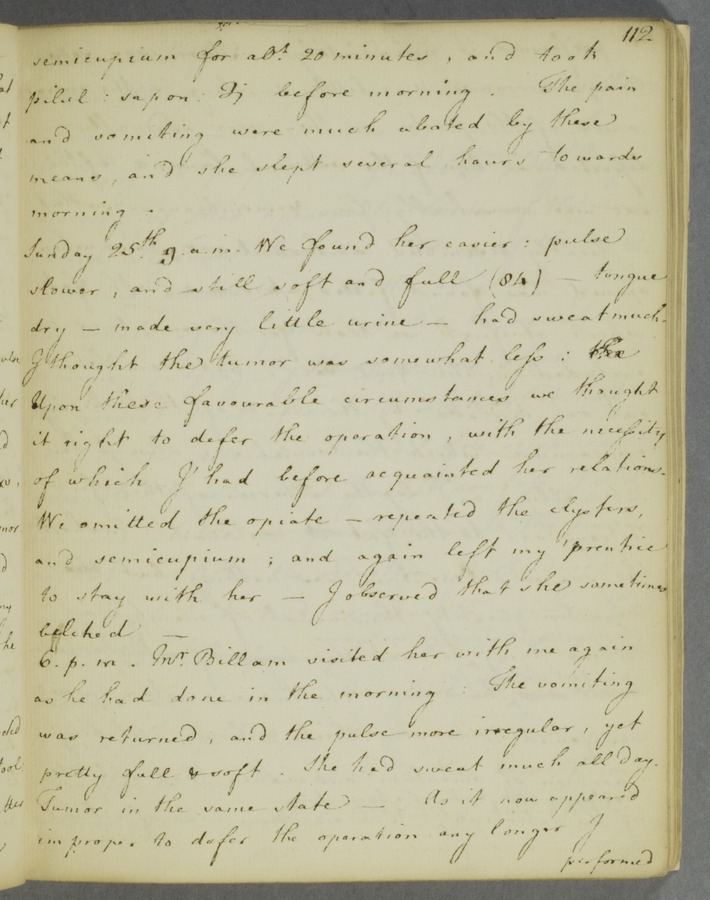 112
semicupium for abt. 20 minutes, and took
pilul: sapon: Ʒj before morning. The pain
and vomiting were much abated by these
means, and she slept several hours towards
morning.
Sunday 25th. 9 a.m. We found her easier: pulse
slower, and still soft and full (84) — tongue
dry — made very little urine — had sweat much.
I thought the tumor was somewhat less: the
Upon these favourable circumstances we thought
it right to defer the operation, with the necessity
of which I had before acquainted her relations.
We omitted the opiate — repeated the clysters,
and semicupium; and again left my 'prentice
to stay with her — I observed that she sometimes
belched —
6. p.m. Mr Billam visited her with me again
as he had done in the morning: The vomiting
was returned, and the pulse more irregular, yet
pretty full & soft. She had sweat much all day.
Tumor in the same state — As it now appeared
improper to defer the operation any longer I
performed